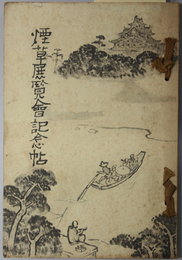 煙草展覧會記念帖